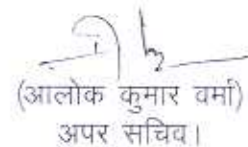 (आलोक कुमार वर्मा)
अपर सचिव।